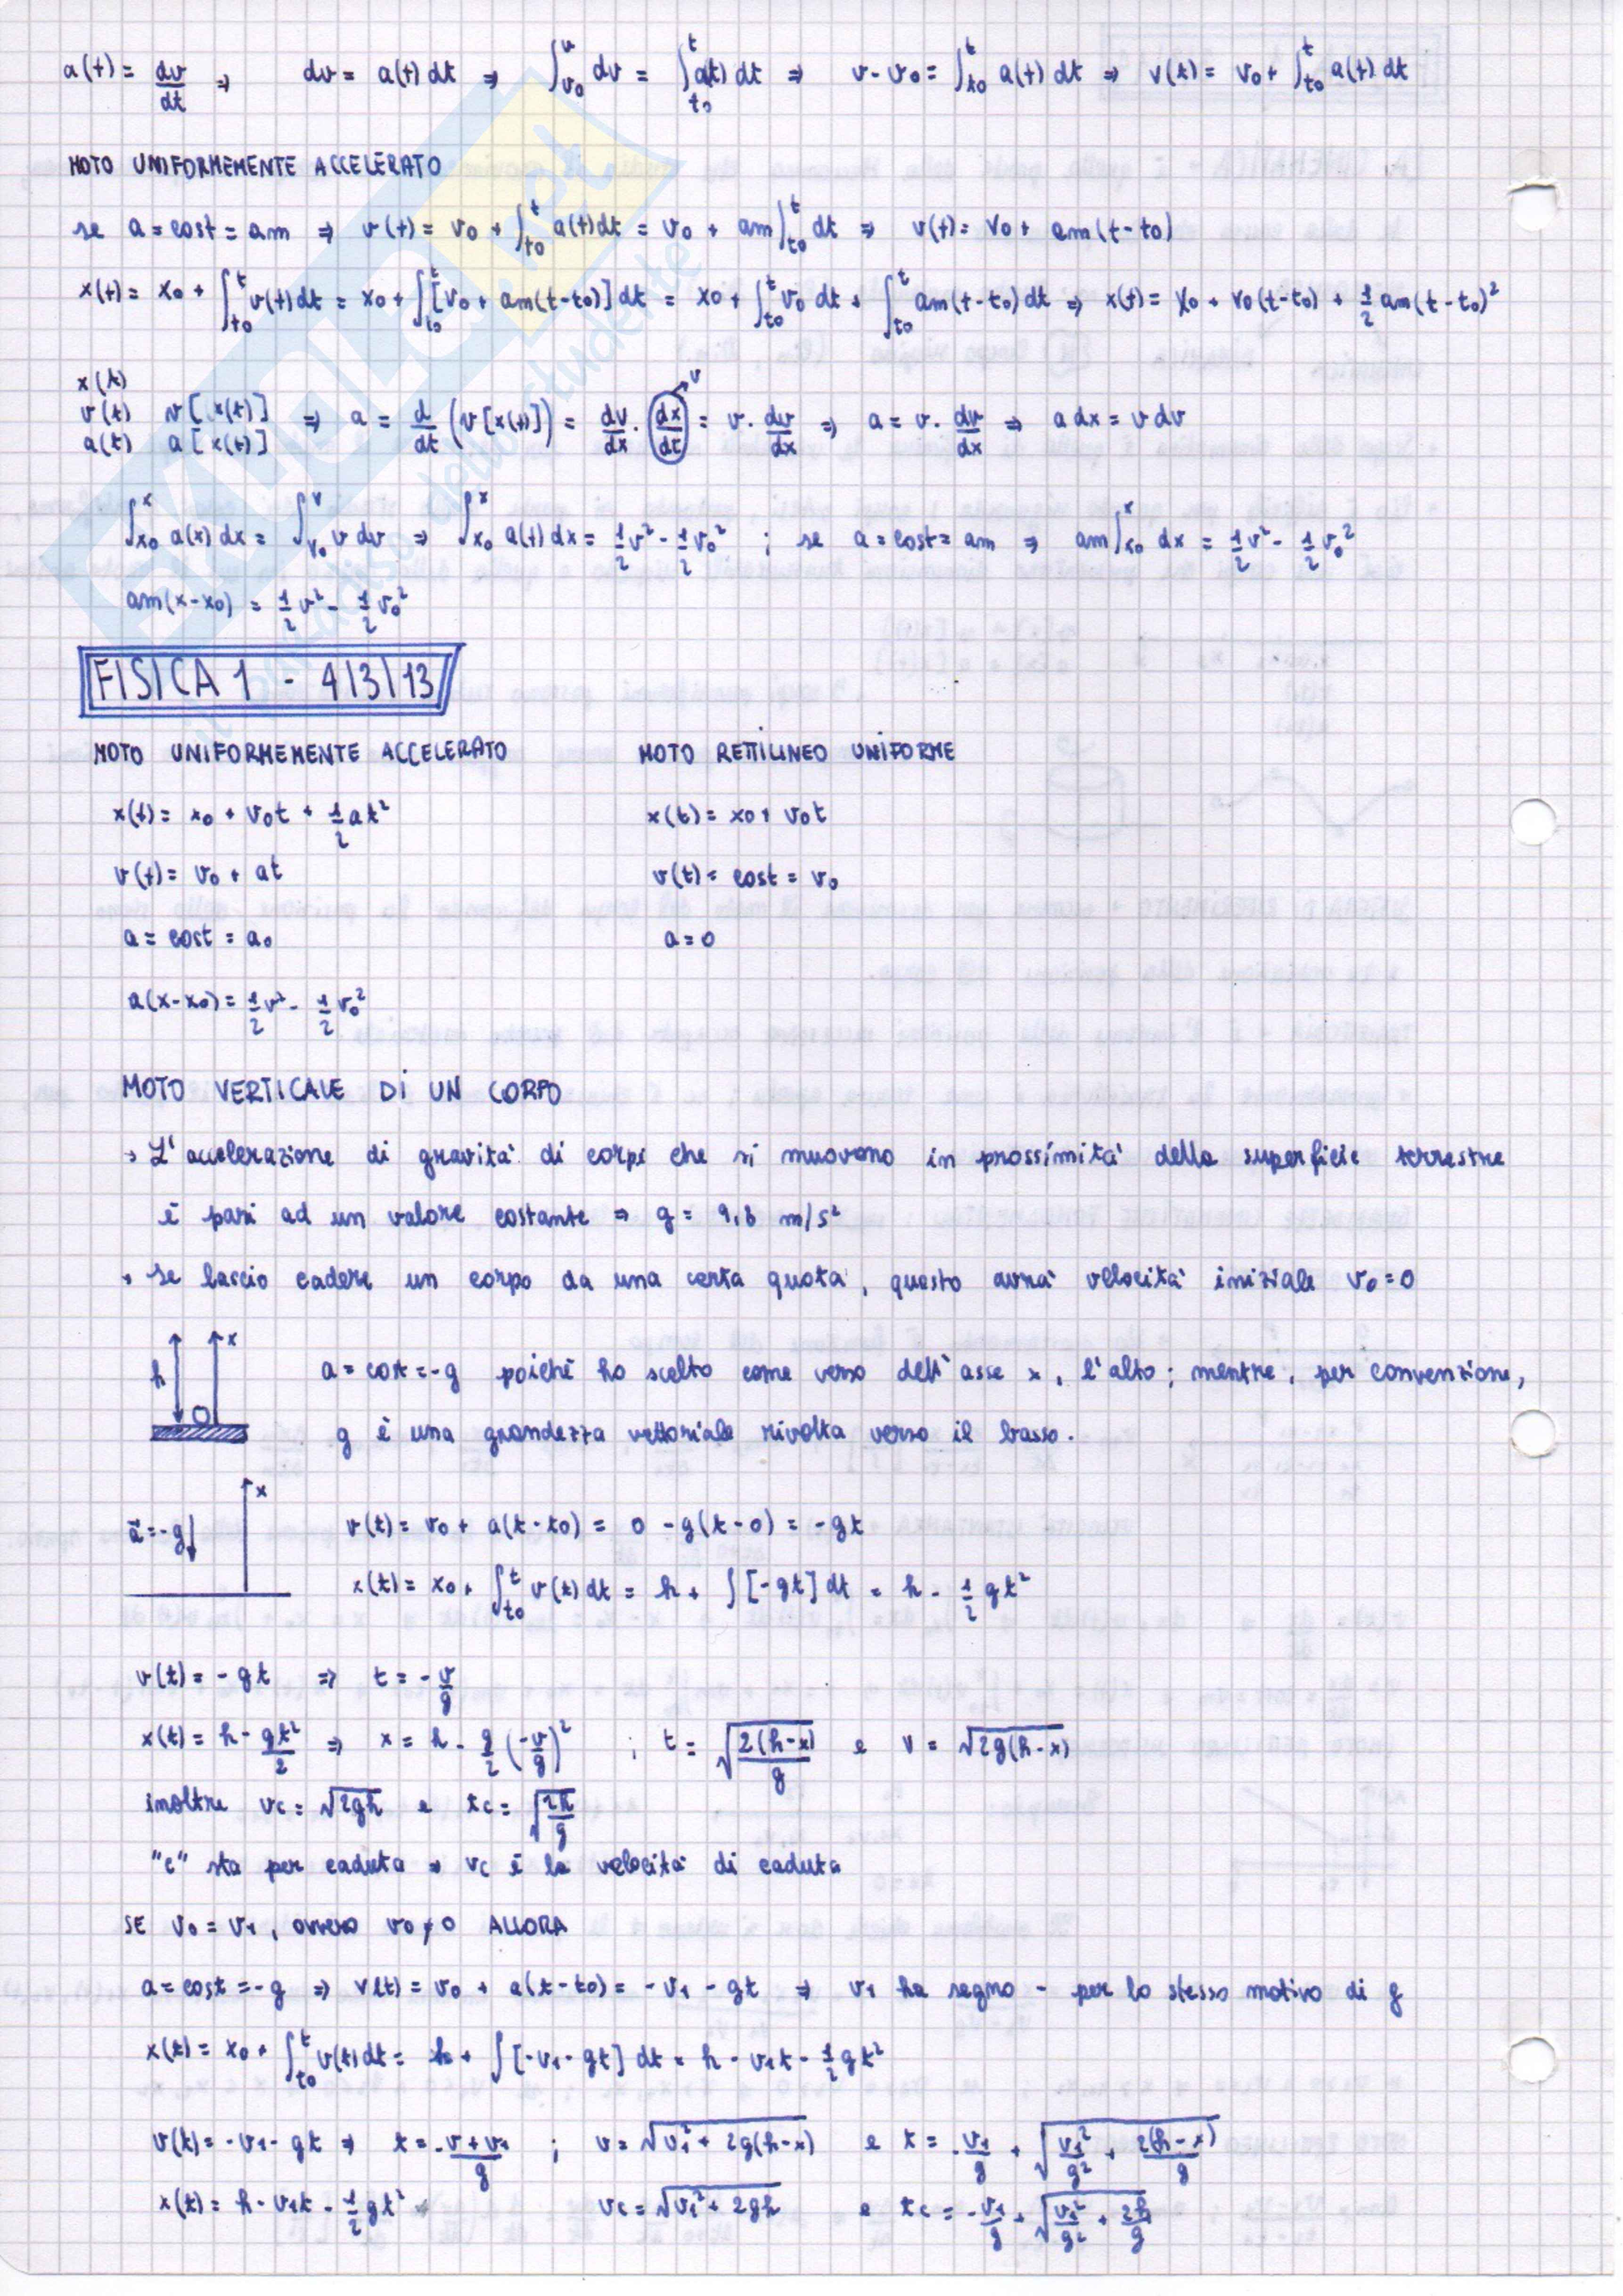 a(t) = dv/dt ⇒ dv = a(t) dt ⇒ ∫_{v0}^{v} dv = ∫_{t0}^{t} a(t) dt ⇒ v - v0 = ∫_{t0}^{t} a(t) dt ⇒ v(t) = v0 + ∫_{t0}^{t} a(t) dt
MOTO UNIFORMEMENTE ACCELERATO
se a = cost = am ⇒ v(t) = v0 + ∫_{t0}^{t} a(t) dt = v0 + am ∫_{t0}^{t} dt ⇒ v(t) = v0 + am(t-t0)
x(t) = x0 + ∫_{t0}^{t} v(t) dt = x0 + ∫_{t0}^{t} [v0 + am(t-t0)] dt = x0 + ∫_{t0}^{t} v0 dt + ∫_{t0}^{t} am(t-t0) dt ⇒ x(t) = x0 + v0(t-t0) + 1/2 am(t-t0)²
x(t)
v(t) v[x(t)] ⇒ a = d/dt (v[x(t)]) = dv/dx · dx/dt = v · dv/dx ⇒ a = v · dv/dx ⇒ a dx = v dv
v
a(t) a[x(t)]
∫_{x0}^{x} a(x) dx = ∫_{v0}^{v} v dv ⇒ ∫_{x0}^{x} a(t) dx = 1/2 v² - 1/2 v0² ; se a = cost = am ⇒ am ∫_{x0}^{x} dx = 1/2 v² - 1/2 v0²
am(x-x0) = 1/2 v² - 1/2 v0²
FISICA 1 - 4|3|13
MOTO UNIFORMEMENTE ACCELERATO MOTO RETTILINEO UNIFORME
x(t) = x0 + v0t + 1/2 at² x(t) = x0 + v0t
v(t) = v0 + at v(t) = cost = v0
a = cost = a0 a = 0
a(x-x0) = 1/2 v² - 1/2 v0²
MOTO VERTICALE DI UN CORPO
→ L'accelerazione di gravità di corpi che si muovono in prossimità della superficie terrestre
è pari ad un valore costante ⇒ g = 9,8 m/s²
• se lascio cadere un corpo da una certa quota, questo avrà velocità iniziale v0 = 0
h x
a = cost = -g poiché ho scelto come verso dell'asse x, l'alto; mentre, per convenzione,
g è una grandezza vettoriale rivolta verso il basso.
x
a⃗ = -g
v(t) = v0 + a(t-t0) = 0 - g(t-0) = -gt
x(t) = x0 + ∫_{t0}^{t} v(t) dt = h + ∫ [-gt] dt = h - 1/2 gt²
v(t) = -gt ⇒ t = - v/g
x(t) = h - gt²/2 ⇒ x = h - g/2 (-v/g)² ; t = √(2(h-x)/g) e v = √(2g(h-x))
inoltre vc = √(2gh) e tc = √(2h/g)
"c" sta per caduta ⇒ vc è la velocità di caduta
SE v0 = v1, ovvero v0 ≠ 0 ALLORA
a = cost = -g ⇒ v(t) = v0 + a(t-t0) = -v1 - gt ⇒ v1 ha segno - per lo stesso motivo di g
x(t) = x0 + ∫_{t0}^{t} v(t) dt = h + ∫ [-v1 - gt] dt = h - v1t - 1/2 gt²
v(t) = -v1 - gt ⇒ t = - (v + v1)/g ; v = √(v1² + 2g(h-x)) e t = - v1/g + √(v1²/g² + 2(h-x)/g)
x(t) = h - v1t - 1/2 gt² vc = √(v1² + 2gh) e tc = - v1/g + √(v1²/g² + 2h/g)